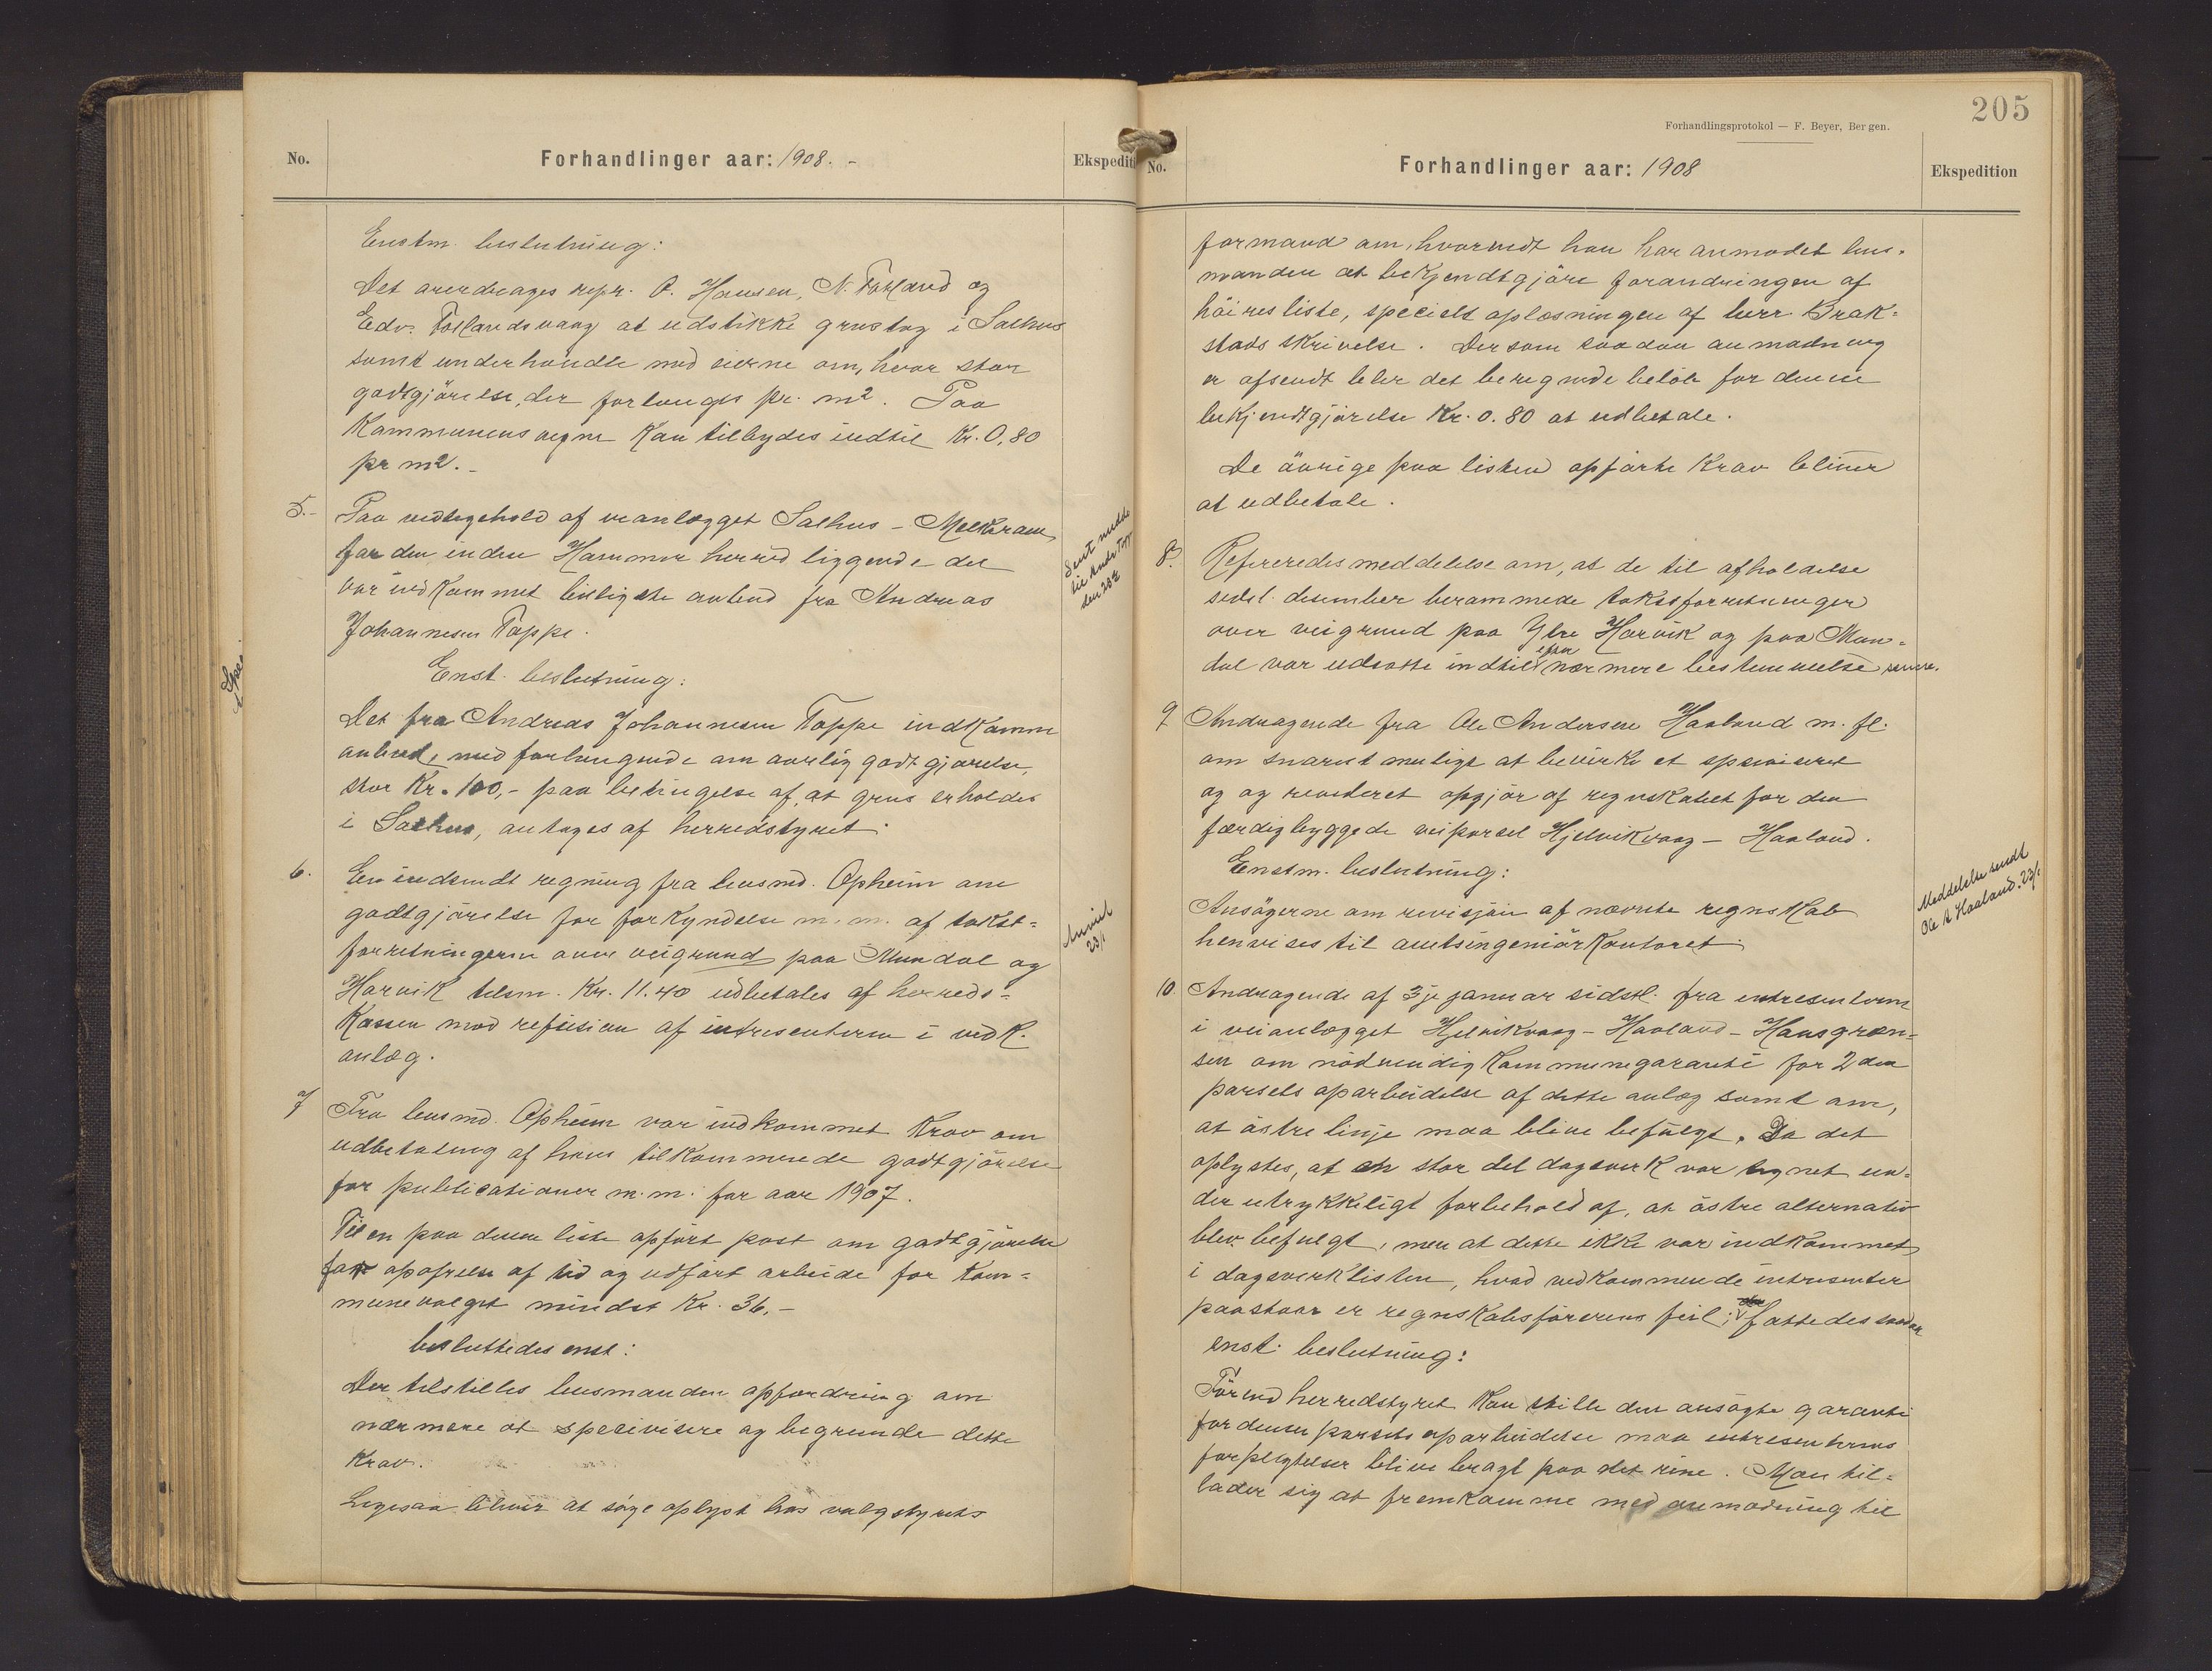 No.
Forhandlinger aar: 1908. -
Ekspediti
Enstm. beslutning:
Det overdrages repr. O. Hansen, N. Fosland og
Edv. Toslandsvaag at udstikke grustag i Salhus
samt underhandle med eierne om, hvor stor
godtgjörelse, der forlanges pr. m2. Paa
Kommunens vegne kan tilbydes indtil Kr. 0,80
pr m2. -
5.- Paa vedligehold af veianlægget Salhus - Melkeraaen
for den inden Hammer herred liggende del
var indkommet billigste anbud fra Andreas
Johannesen Toppe.
Enst. beslutning:
Det fra Andreas Johannesen Toppe indkomne
anbud, med forlangende om aarlig godtgjørelse,
stor Kr. 100,- paa betingelse af, at grus erholdes
i Salhus, antages af herredstyret.
Sent medde
til Andr. Topp
den 28/2
6. En indsendt regning fra lensmd. Opheim om
godtgjörelse for forkyndelse m. m. af takst-
forretningerne over veigrund paa Mundal og
Horvik tilsm. Kr. 11.40 udbetales af herreds-
kassen mod refusion af intresenterne i vedk.
anlæg.
Anvist
23/1
7 Fra lensmd. Opheim var indkommet Krav om
udbetaling af hans tilkommende godtgjörelse
for publicationer m. m. for aar 1907.
Til en paa denne liste opfört post om godtgjörelse
for opofrelse af tid og udfört arbeide for kom-
munevalget mindst Kr. 36,-
besluttedes enst:
Der tilstilles lensmanden opfordring om
nærmere at spesivisere og begrunde dette
Krav.
Ligesaa bliver at søge oplyst hos valgstyrets
Spes.
Forhandlingsprotokol — F. Beyer, Bergen.
205
No.
Forhandlinger aar: 1908
Ekspedition
formand om, hvorvidt han har anmodet lens-
manden at bekjendtgjöre forandringen af
höires liste, specielt oplæsningen af herr Brak-
stads skrivelse. Dersom saadan anmodning
er afsendt bliver det beregnede belöb for denne
bekjendtgjörelse Kr. 0.80 at udbetale.
De övrige paa listen opförte Krav bliver
at udbetale.
8. Refereredes meddelelse om, at de til afholdelse
sidstl. desember berammede takstforretninger
over veigrund paa Ytre Horvik og paa Mun-
dal var udsatte indtil efter nærmere bestemmelse senere.
9 Andragende fra Ole Andersen Haaland m. fl.
om snarest muligt at bevirke et spesiviseret
og og revideret opgjör af regnskabet for den
færdigbyggede veiparsel Hjelvikvaag - Haaland.
Enstm. beslutning:
Ansögerne om revisjon af nævnte regnskab
henvises til amtsingeniörkontoret.
Meddelelse sendt
Ole A Haaland. 23/1
10. Andragende af 3je januar sidstl. fra intresenterne
i veianlægget Hjelvikvaag - Haaland - Hausgræn-
sen om nödvendig kommunegaranti for 2den
parsels oparbeidelse af dette anlæg samt om,
at östre linje maa blive befulgt. Da det
oplystes, at en stor del dagsverk var tegnet un-
der utrykkeligt forbehold af, at östre alternativ
blev befulgt, men at dette ikke var indkommet
i dagsverklisten, hvad vedkommende intresenter
paastaar er regnskabsförerens feil; fattedes saadan
enst. beslutning:
Förend herredstyret kan stille den ansögte garanti
for denne parsels oparbeidelse maa intresenternes
forpligtelser blive bragt paa det rene. Man til-
lader sig at fremkomme med anmodning til